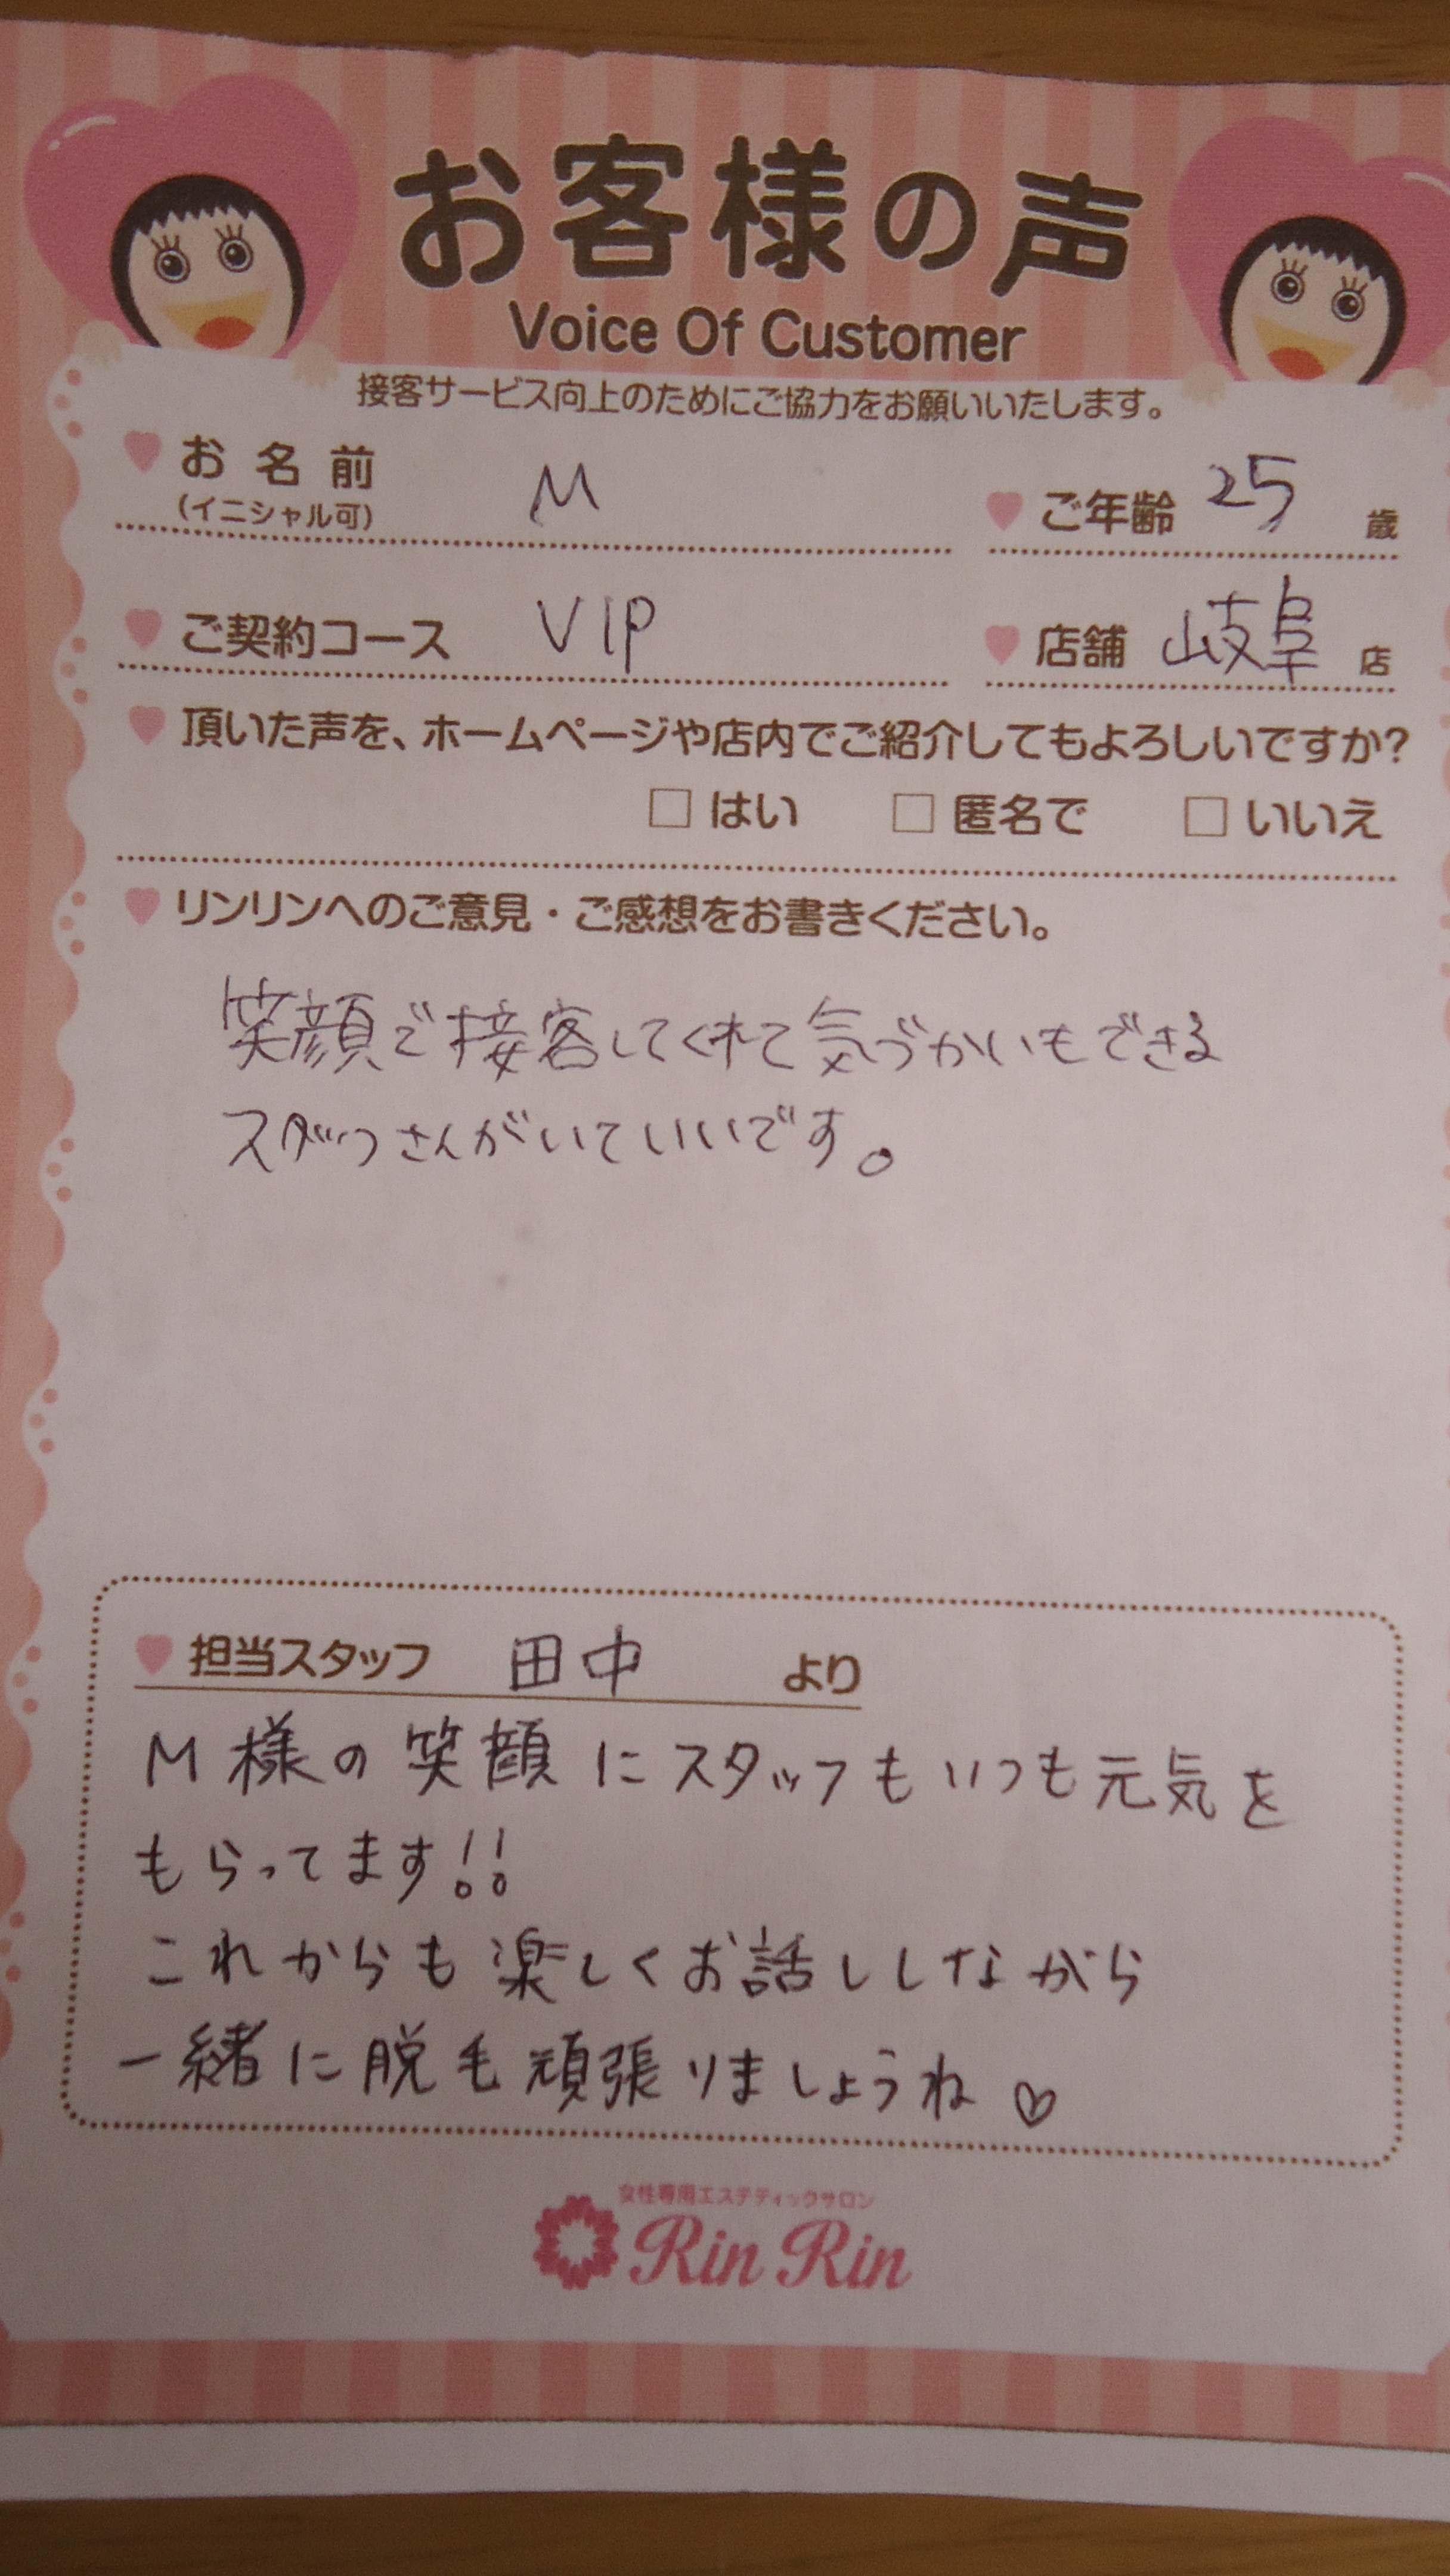 お客様の声
Voice Of Customer
接客サービス向上のためにご協力をお願いいたします。
お名前 M
(イニシャル可)
ご年齢 25 歳
ご契約コース VIP
店舗 岐阜 店
頂いた声を、ホームページや店内でご紹介してもよろしいですか?
□ はい □ 匿名で □ いいえ
リンリンへのご意見・ご感想をお書きください。
笑顔で接客してくれて気づかいもできる
スタッフさんがいていいです。
担当スタッフ 田中 より
M様の笑顔にスタッフもいつも元気を
もらってます!!
これからも楽しくお話ししながら
一緒に脱毛頑張りましょうね♡
女性専用エステティックサロン
Rin Rin